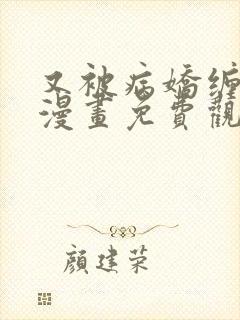 又被病嬌缠
漫畫免費觀
顏建荣